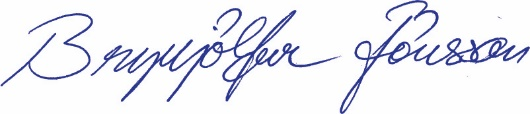 Brynjólfur Jónsson